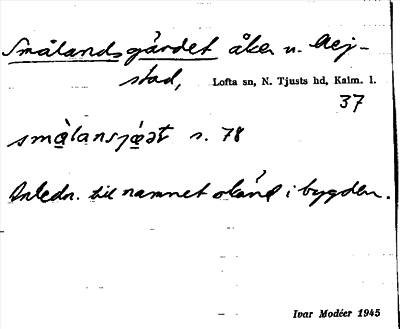 Smålandsgärdet åker u. Mej-
stad, Lofta sn, N. Tjusts hd, Kalm. l.
37
smålansjäṣt s. 78
Anledn. till namnet okänd i bygden.
Ivar Modéer 1945